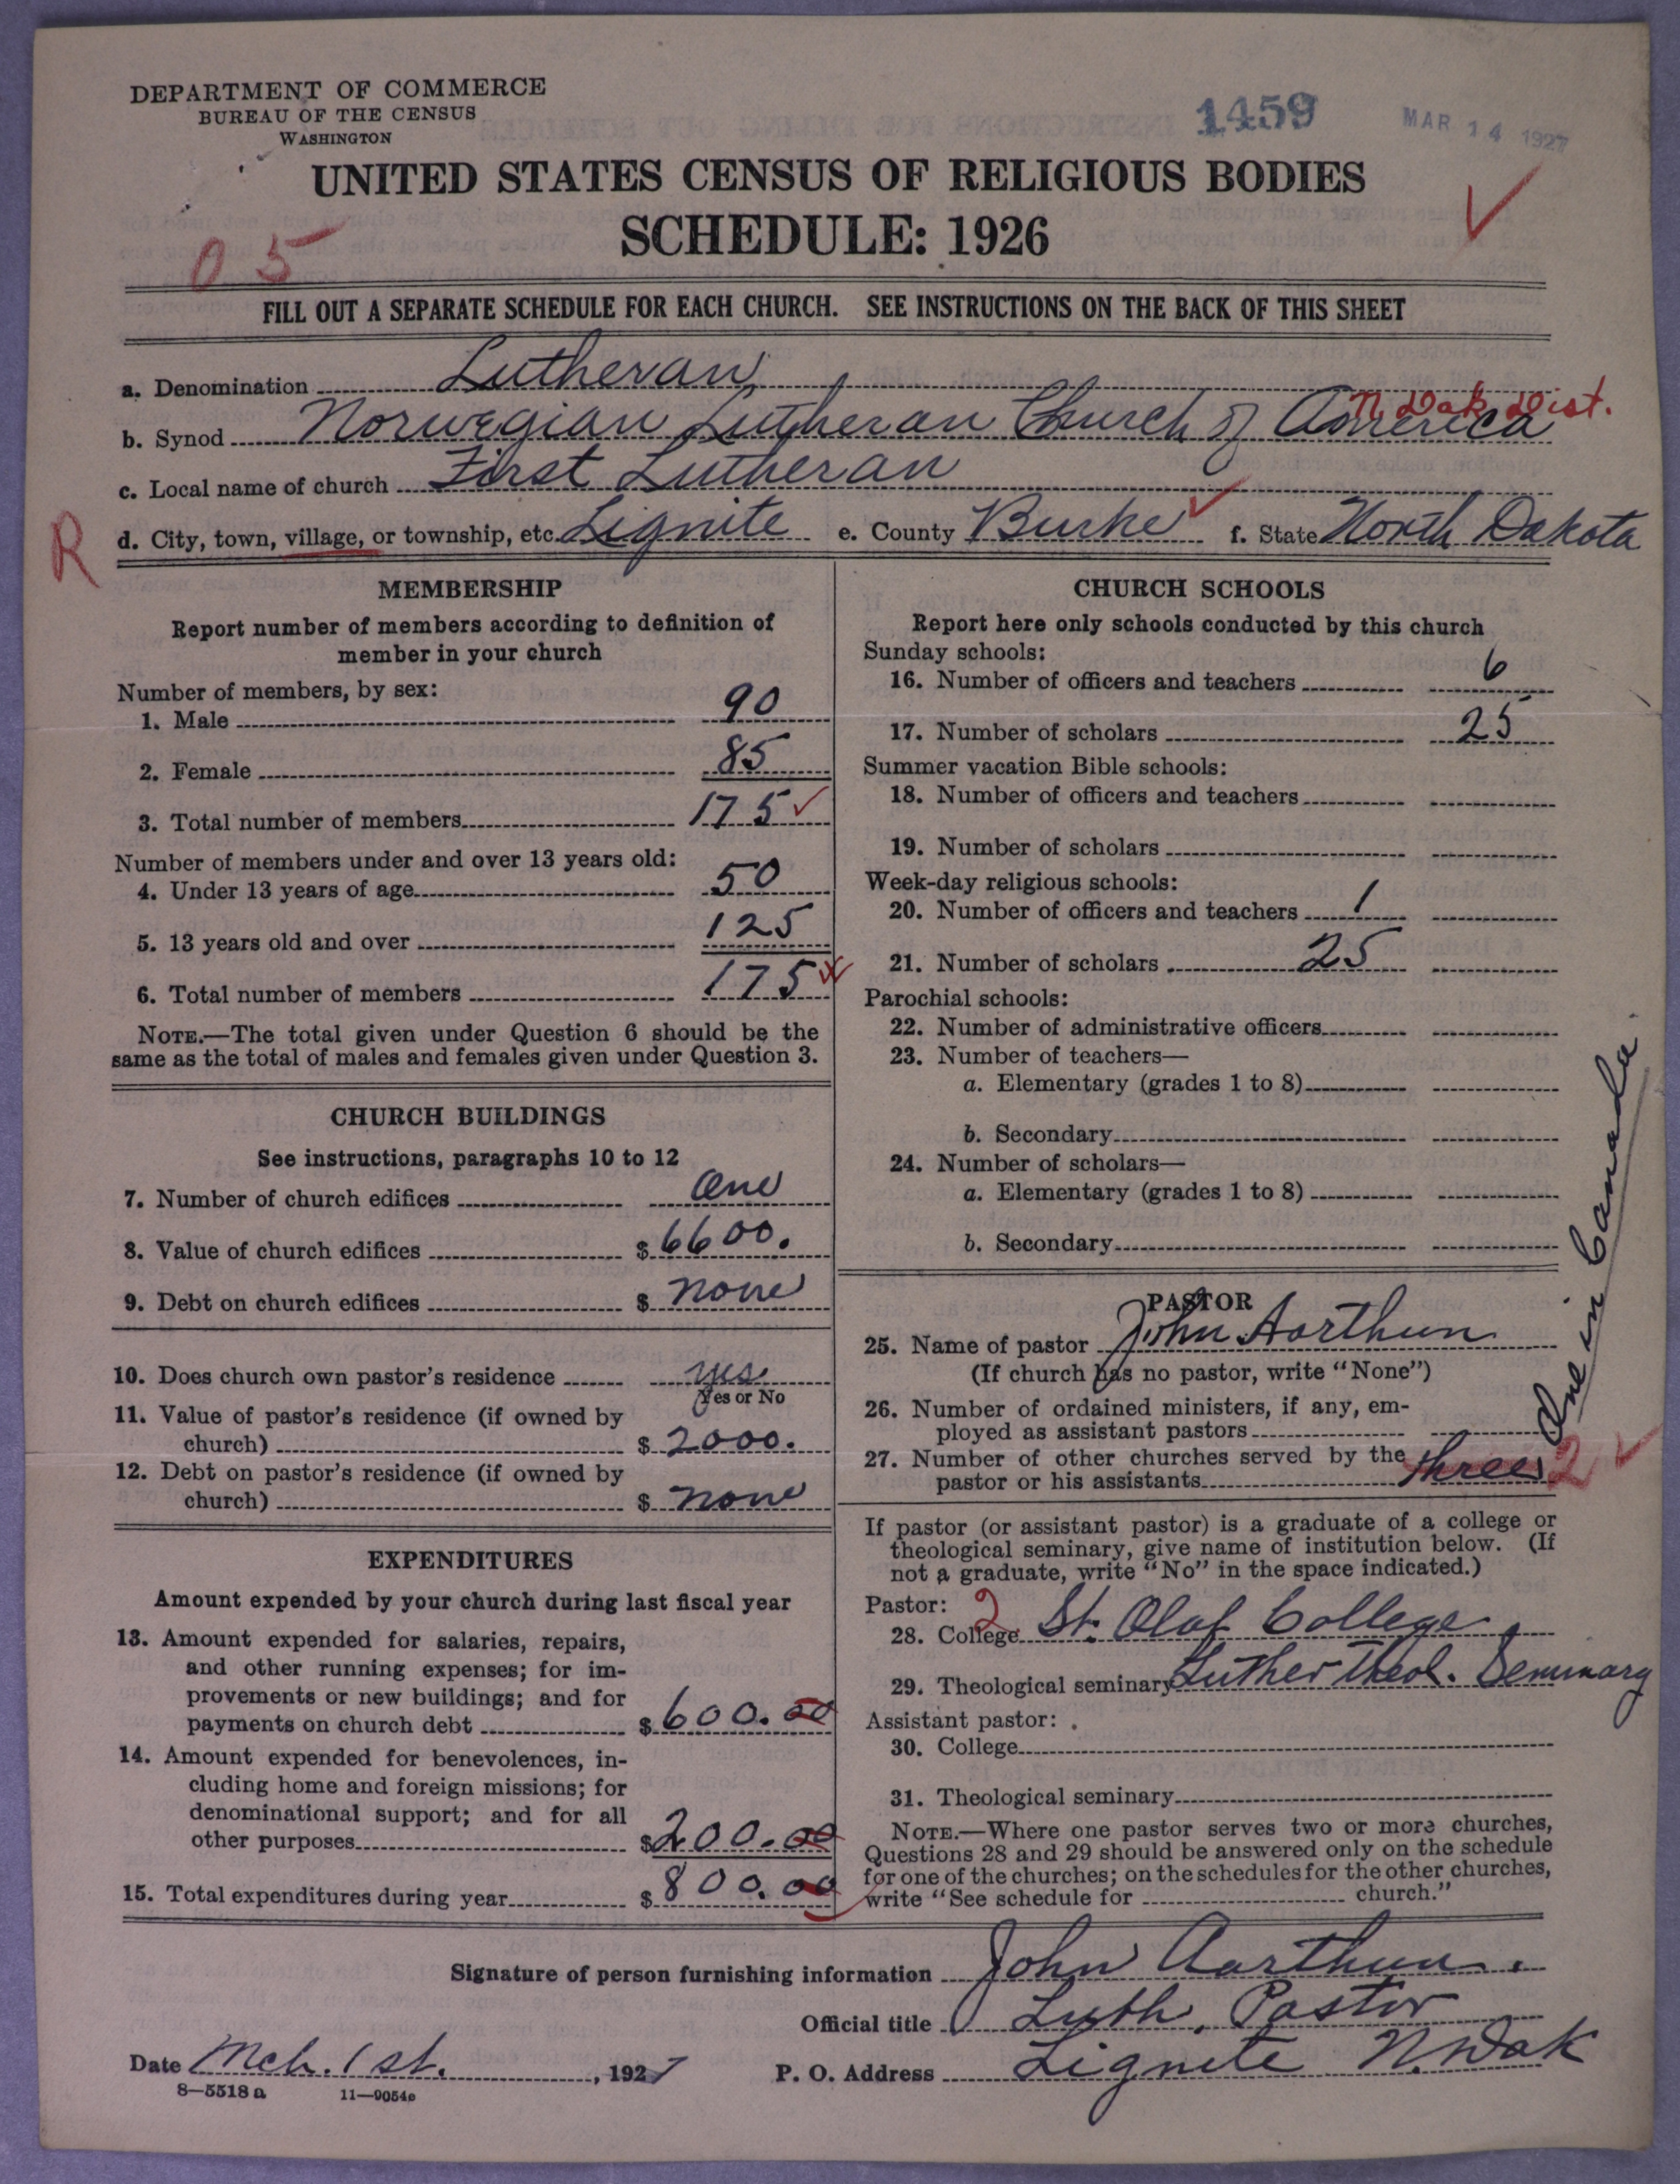 DEPARTMENT OF COMMERCE
BUREAU OF THE CENSUS
WASHINGTON
1459
MAR 14 1927
UNITED STATES CENSUS OF RELIGIOUS BODIES
SCHEDULE: 1926
05
FILL OUT A SEPARATE SCHEDULE FOR EACH CHURCH. SEE INSTRUCTIONS ON THE BACK OF THIS SHEET
a. Denomination Lutheran
N. Dak. Dist.
b. Synod Norwegian Lutheran Church of America
c. Local name of church First Lutheran
R
d. City, town, village, or township, etc. Lignite e. County Burke f. State North Dakota
MEMBERSHIP
Report number of members according to definition of
member in your church
Number of members, by sex:
1. Male 90
2. Female 85
3. Total number of members 175
Number of members under and over 13 years old:
4. Under 13 years of age 50
5. 13 years old and over 125
6. Total number of members 175
NOTE.—The total given under Question 6 should be the
same as the total of males and females given under Question 3.
CHURCH BUILDINGS
See instructions, paragraphs 10 to 12
7. Number of church edifices One
8. Value of church edifices $ 6600.
9. Debt on church edifices $ none
10. Does church own pastor's residence yes
Yes or No
11. Value of pastor's residence (if owned by
church) $ 2000.
12. Debt on pastor's residence (if owned by
church) $ none
EXPENDITURES
Amount expended by your church during last fiscal year
13. Amount expended for salaries, repairs,
and other running expenses; for im-
provements or new buildings; and for
payments on church debt $ 600.00
14. Amount expended for benevolences, in-
cluding home and foreign missions; for
denominational support; and for all
other purposes $ 200.00
15. Total expenditures during year $ 800.00
CHURCH SCHOOLS
Report here only schools conducted by this church
Sunday schools:
16. Number of officers and teachers 6
17. Number of scholars 25
Summer vacation Bible schools:
18. Number of officers and teachers
19. Number of scholars
Week-day religious schools:
20. Number of officers and teachers 1
21. Number of scholars 25
Parochial schools:
22. Number of administrative officers
23. Number of teachers—
a. Elementary (grades 1 to 8)
b. Secondary
24. Number of scholars—
a. Elementary (grades 1 to 8)
b. Secondary
PASTOR
25. Name of pastor John Aarthun
(If church has no pastor, write "None")
26. Number of ordained ministers, if any, em-
ployed as assistant pastors
27. Number of other churches served by the
pastor or his assistants three 2
One in Canada.
If pastor (or assistant pastor) is a graduate of a college or
theological seminary, give name of institution below. (If
not a graduate, write "No" in the space indicated.)
Pastor: 2
28. College St. Olaf College
29. Theological seminary Luther Theol. Seminary
Assistant pastor:
30. College
31. Theological seminary
NOTE.—Where one pastor serves two or more churches,
Questions 28 and 29 should be answered only on the schedule
for one of the churches; on the schedules for the other churches,
write "See schedule for church."
Signature of person furnishing information John Aarthun.
Official title Luth. Pastor
Date Mch. 1st., 1927 P. O. Address Lignite N. Dak
8—5518 a 11—9054c